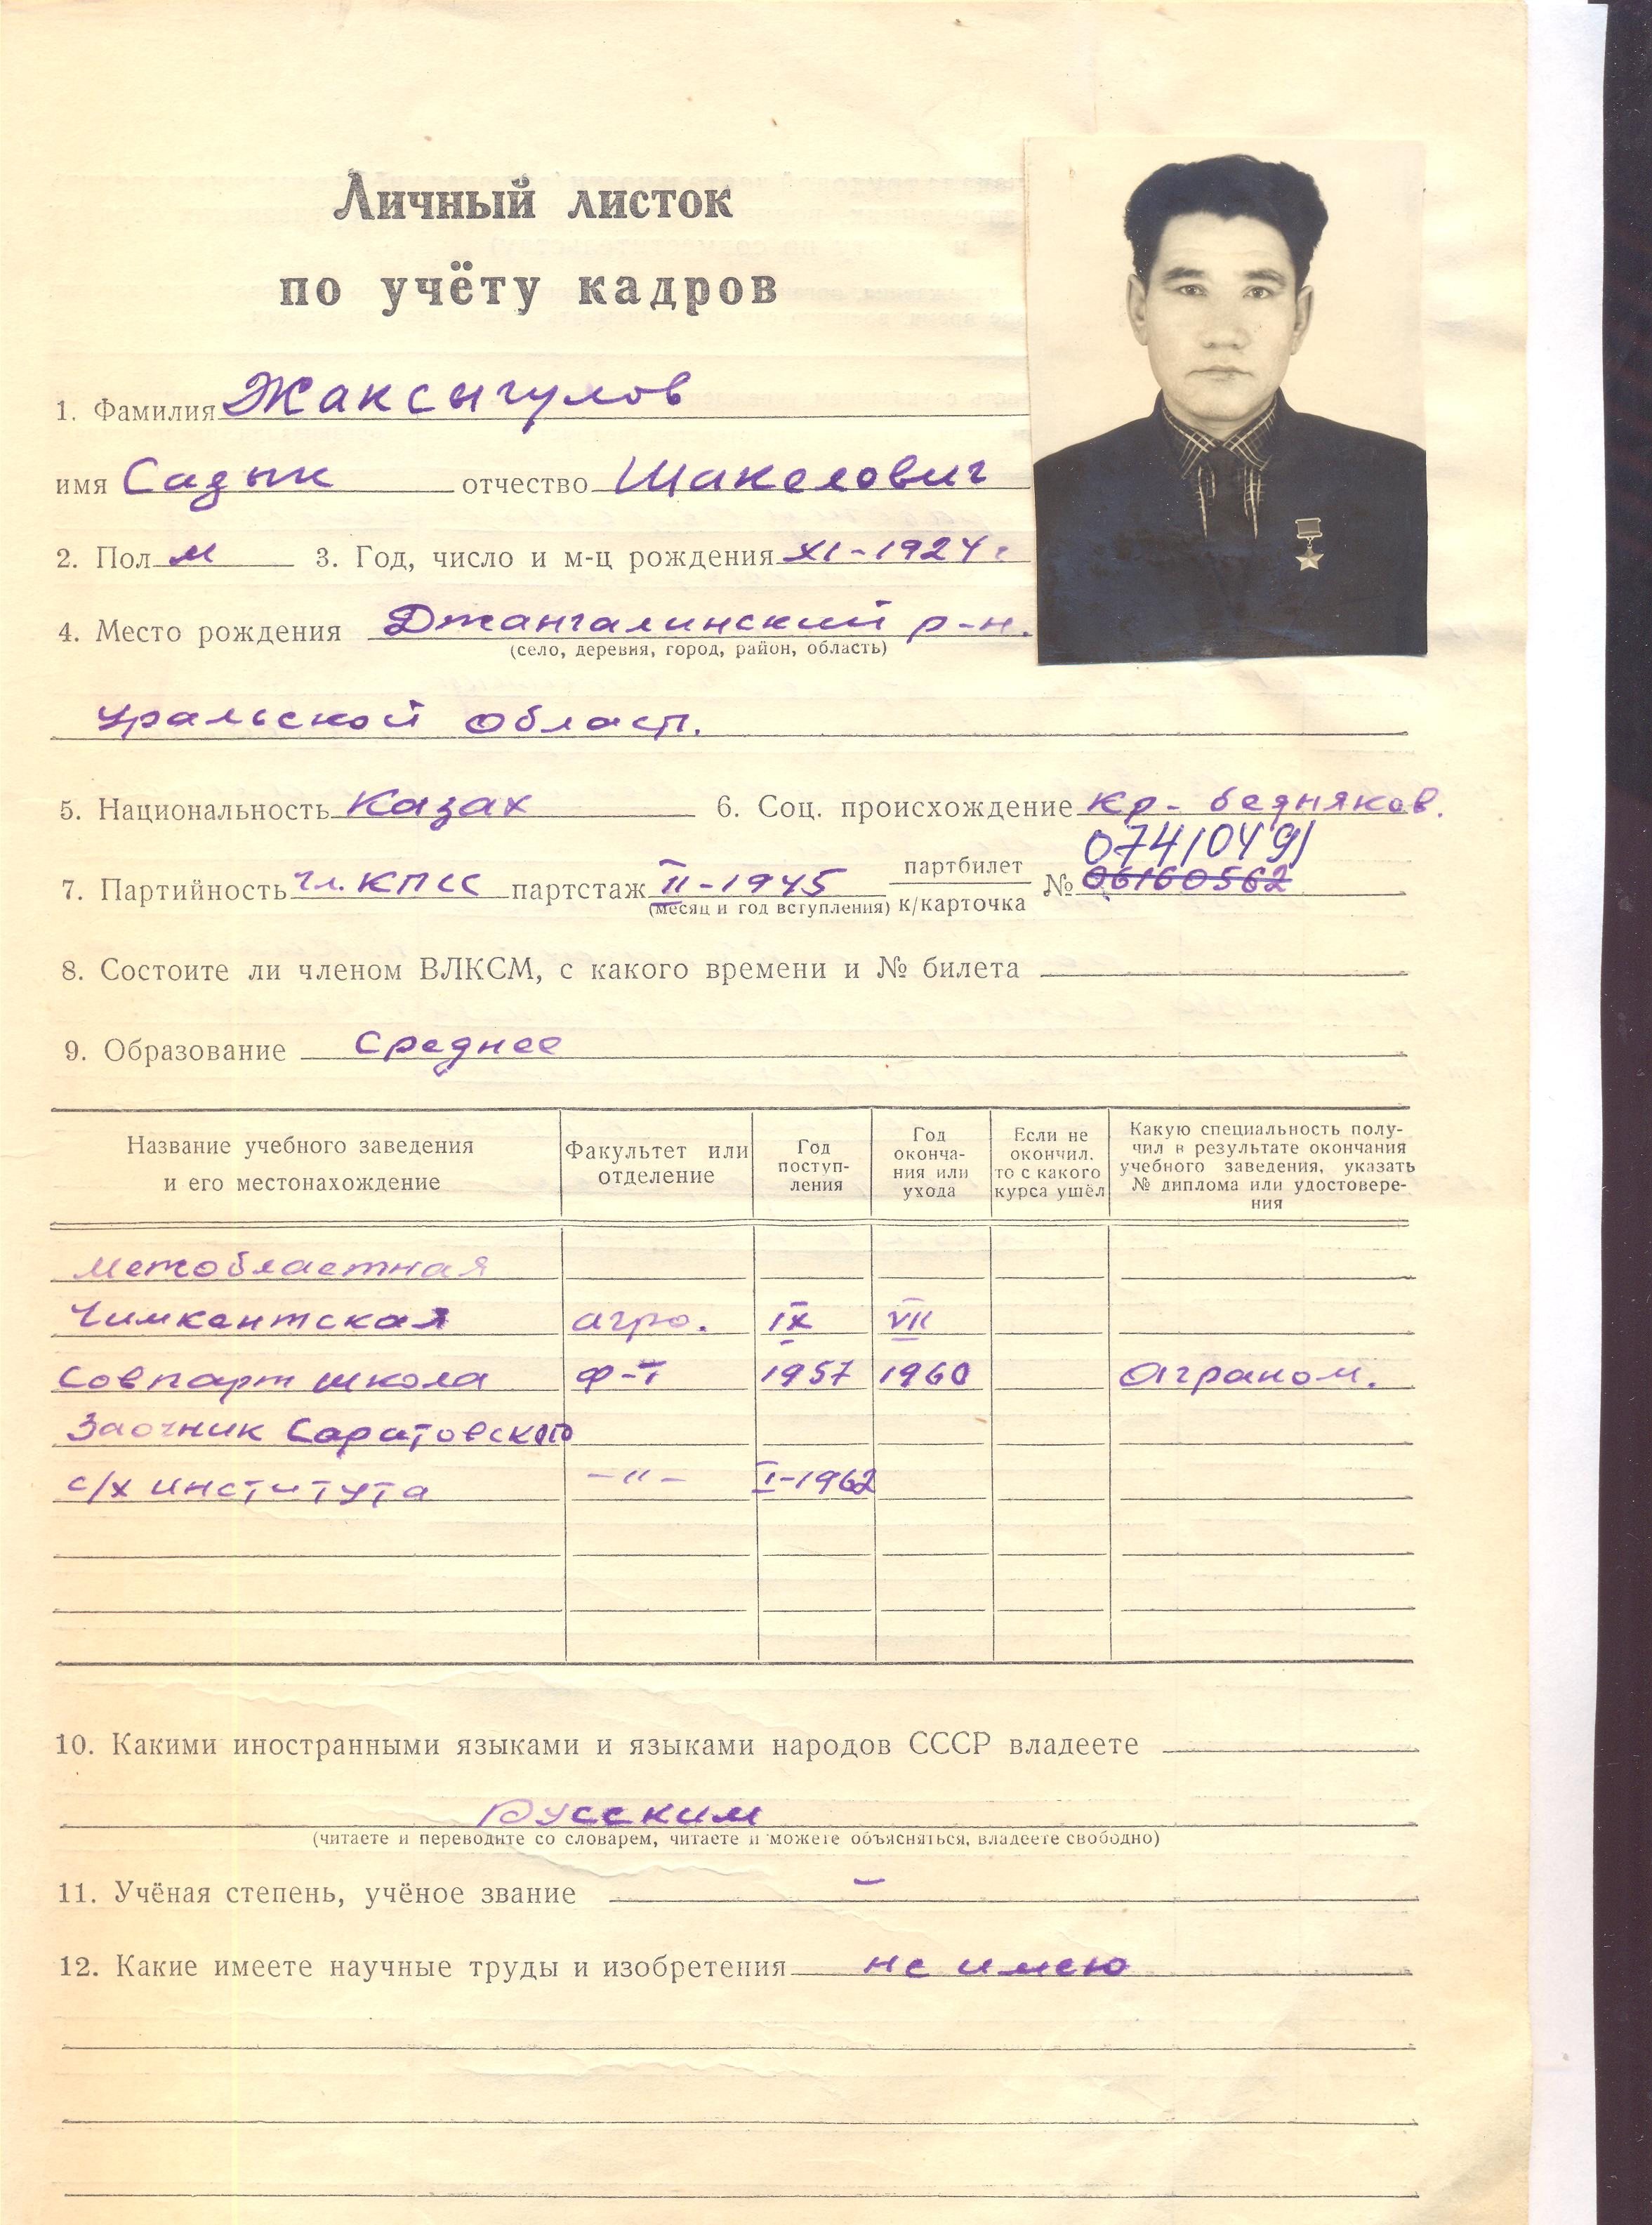 Личный листок
по учёту кадров
1. Фамилия Жаксыгулов
имя Садык отчество Шакелович
2. Пол м 3. Год, число и м-ц рождения XI-1924 г
4. Место рождения Джангалинский р-н.
(село, деревня, город, район, область)
Уральской област.
5. Национальность Казах 6. Соц. происхождение кр- бедняков.
07410491
7. Партийность чл. КПСС партстаж II-1945 партбилет № 06160562
(месяц и год вступления) к/карточка
8. Состоите ли членом ВЛКСМ, с какого времени и № билета
9. Образование Среднее
Название учебного заведения и его местонахождение Факультет или отделение Год поступ-ления Год оконча-ния или ухода Если не окончил, то с какого курса ушёл Какую специальность полу-чил в результате окончания учебного заведения, указать № диплома или удостовере-ния
Межобластная
Чимкентская агро. IX VII
Совпарт школа ф-т 1957 1960 Аграном.
Заочник Саратовского
с/х института -"- I-1962
10. Какими иностранными языками и языками народов СССР владеете
Русским
(читаете и переводите со словарем, читаете и можете объясняться, владеете свободно)
11. Учёная степень, учёное звание –
12. Какие имеете научные труды и изобретения не имею